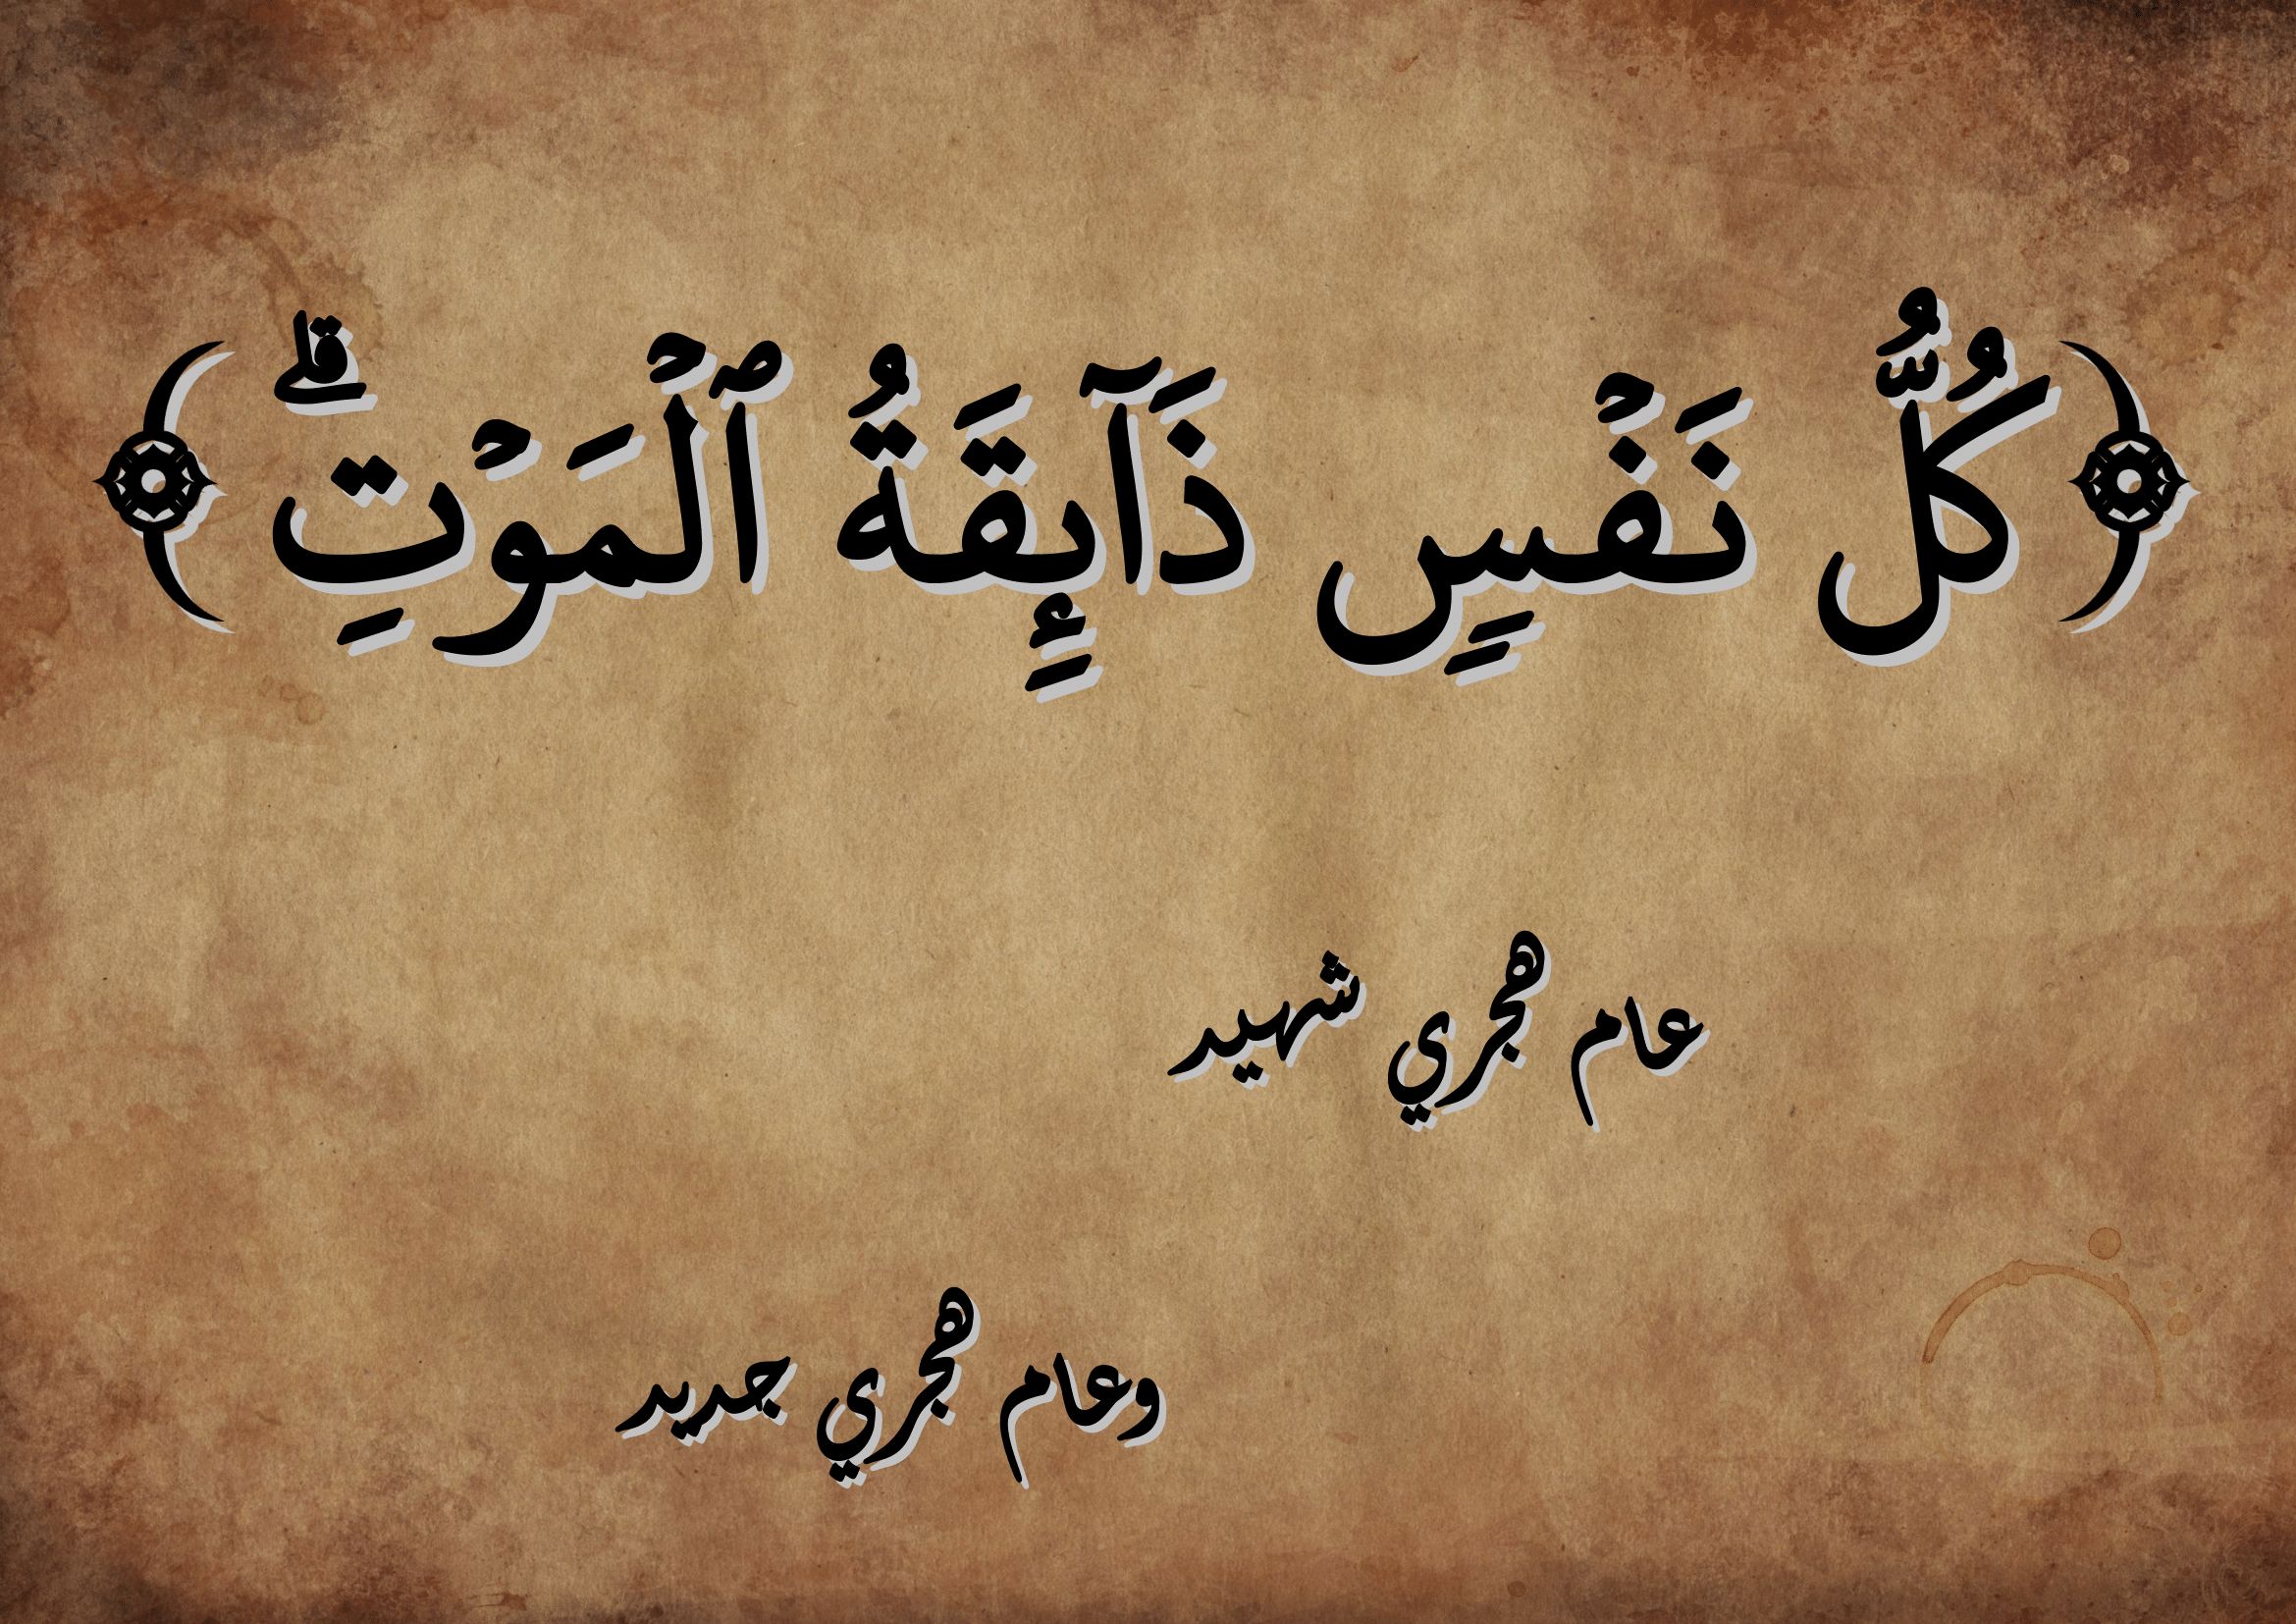 ﴿كُلُّ نَفۡسٖ ذَآئِقَةُ ٱلۡمَوۡتِۗ﴾
عام هجري شهيد
وعام هجري جديد